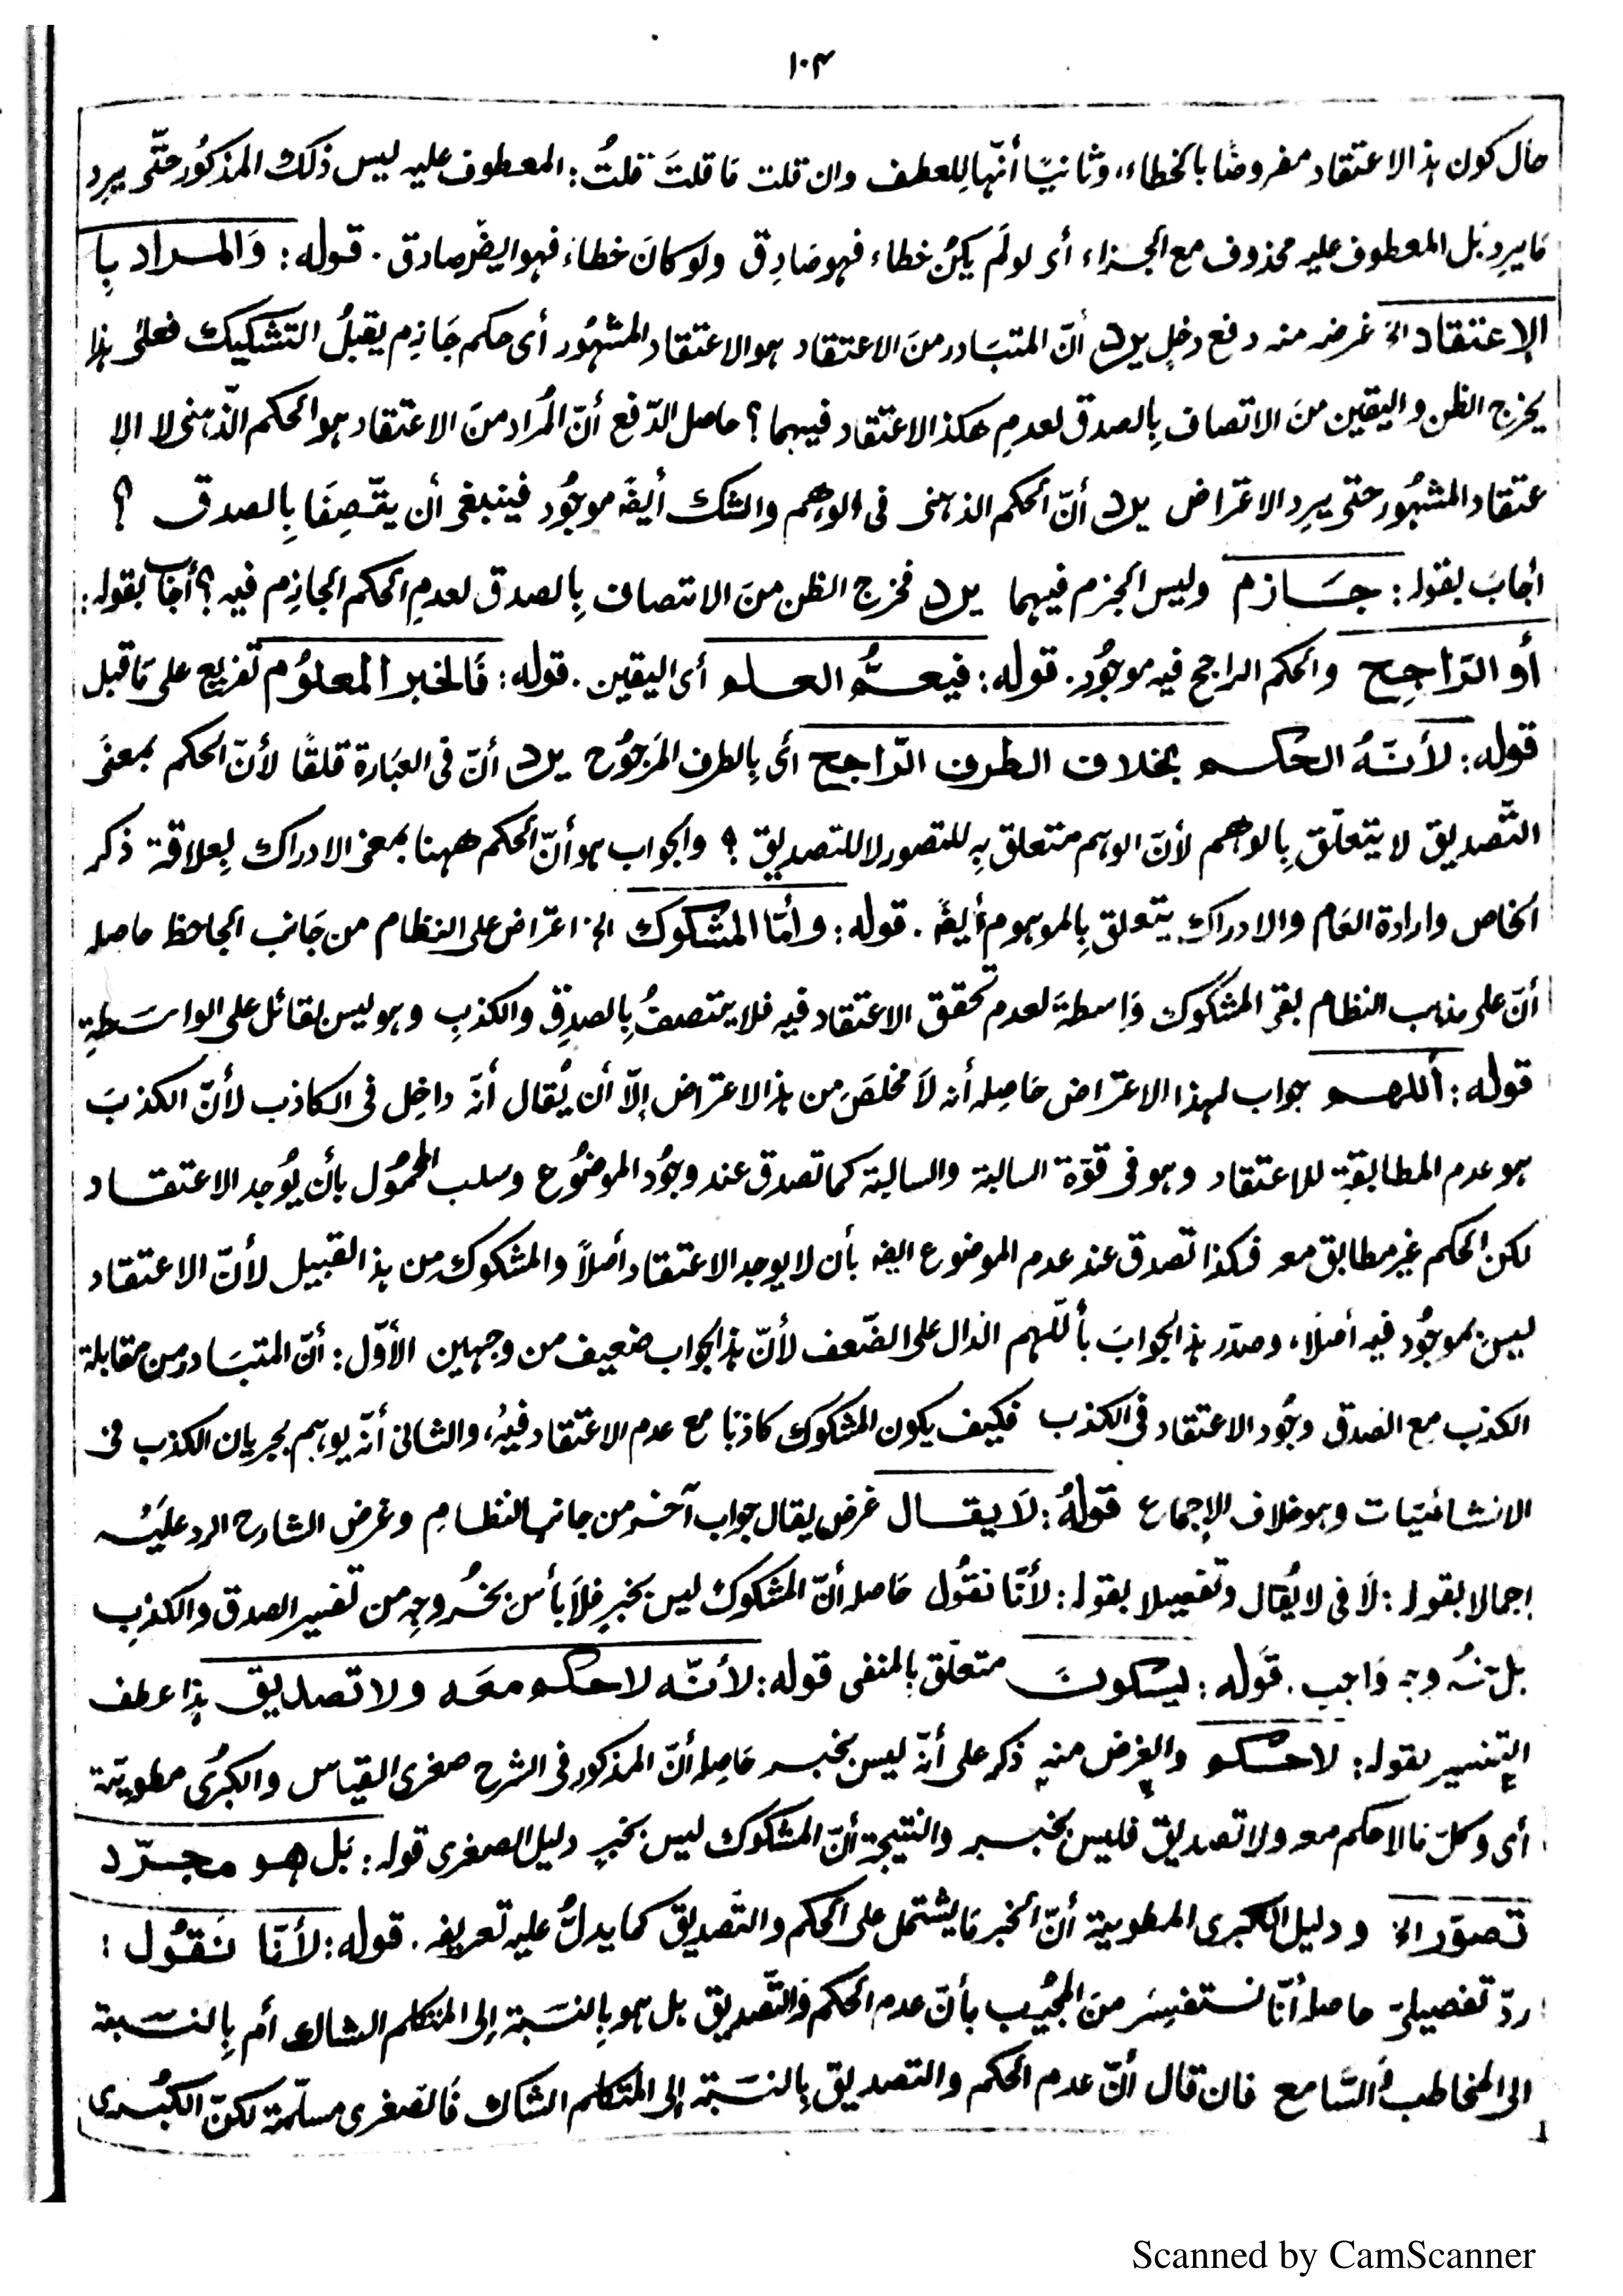 ١٠٤
حال كون هذا الاعتقاد مفروضًا بالخطاء، وثانيًا أنّها للعطف وان قلت مَا قلتَ قلتُ: المعطوف عليه ليس ذلك المذكُور حتّى يرِد
مَا يرِد بَل المعطوف عليه محذوف مع الجزاء أى لو لَم يكُن خطاء فهو صَادِق ولو كانَ خطاءً فهو ايضًر صادق. قوله: وَالمراد بِا
الإعتقاد الخ غرضه منه دفع دخلٍ يرد أنّ المتبَادر منَ الاعتقاد هو الاعتقاد المشهُور أى حكم جَازِم يقبلُ التشكيك فعلى هذا
يخرج الظن واليقين منَ الاتصاف بِالصدق لعدمِ هكذ الاعتقاد فيهما؟ حاصل الدّفع أنّ المُراد منَ الاعتقاد هو الحكم الذّهنى لا الإ
عتقاد المشهُور حتى يرِد الاعتراض يرد أنّ الحكم الذهنى فى الوهم والشك أيضًه موجُود فينبغى أن يتّصِفَا بِالصدق ؟
أجَابَ بقوله: جَازم وليس الجزم فيهما يرد فخرج الظن منَ الاتصاف بِالصدق لعدمِ الحكم الجازِم فيه؟ أجَاب بقوله:
أو الرّاجِح والحكم الراجح فيه موجُود. قوله: فيعمُّ العلم أى اليقين. قوله: فَالخبر المعلوُم تفريع على مَا قبل
قوله: لأنّهُ الحكم بخلاف الطرف الرّاجح أى بِالطرف المَرجوُح يرد أنّ فى العبَارة قلقًا لأنّ الحكم بمعنَى
التّصديق لا يتعلّق بِالوهم لأنّ الوهم متعلق بِه للتصور لا للتصديق؟ والجواب هو أنّ الحكم ههنا بمعنى الادراك بِعلاقة ذكر
الخاص وارادة العَام والادراك يتعلق بِالموهوم أيضًه. قوله: وأمّا المشكوك الخ اعتراض على النظام من جَانب الجاحظ حاصله
أنّ على مذهب النظام بقى المشكوك وَاسطةً لعدم تحقق الاعتقاد فيه فلا يتصفُ بِالصدقِ والكذبِ وهو ليس بقائل على الواسَطةِ
قوله: أللهم جواب لهذا الاعتراض حَاصِله أنه لاَ مخلصَ من هذا الاعتراض إلّا أن يُقال أنّه داخِل فى الكاذب لأنّ الكذبَ
هو عدم المطابقةِ للاعتقاد وهو فى قوّة السالبة والسالبة كما تصدق عند وجُود الموضُوع وسلب المحمُول بأن يُوجد الاعتقاد
لكن الحكم غير مطابق معه فكذا تصدق عند عدم الموضوع ايضه بأن لا يوجد الاعتقاد أصلاً والمشكوك من هذا القبيل لأنّ الاعتقاد
ليس بموجُود فيه أصلًا، وصدّر هذا الجوابَ بأللّهم الدال على الضّعف لأنّ هذا الجواب ضعيف من وجهين الأوّل: أنّ المتبَادر من مقابلة
الكذب مع الصّدق وجُود الاعتقاد فى الكذب فكيف يكون المشكوك كاذبًا مع عدم الاعتقاد فيهُ، والثانى أنّه يوهم بجريان الكذب فى
الانشائيّات وهو خلاف الإجماع قولهُ: لَا يقال غرض يقال جواب آخر من جانب النظامِ وغرض الشارح الرد عليَه
إجمالا بقوله: لَا فى لا يُقال وتفصيلا بقوله: لأنّا نقُول حَاصله أنّ المشكوك ليس بخبرٍ فلَا بأس بخُروجِه من تفسير الصدق والكذبِ
بل خُروجه وَاجب. قوله: ليكونَ متعلّق بِالمنفى قوله: لأنّه لا حكم معَه ولا تصديق هذا عطف
التفسير بقوله: لا حكم والغرض منه ذكر على أنّه ليس بخبر حَاصِله أنّ المذكور فى الشرح صغرى القيَاس والكبرُى مطويّة
أى وكلّ مَا لا حكم معه ولا تصديق فليس بخبر والنتيجة أنّ المشكوك ليس بخبرٍ دليل الصغرى قوله: بَل هو مجرّد
تصوّر الخ ودليل الكبرى المطوية أنّ الخبر مَا يشتمل على الحكم والتّصديق كما يدلُّ عليه تعريفه. قوله: لأنّا نَقوُل:
ردّ تفصيلىّ حاصله أنّا نستفسِر منَ المجُيب بأنّ عدم الحكم وَالتّصديق بل هو بِالنسَبة إلى المتكلم الشاك أم بِالنسَبة
الى المخاطب السَّامع فان قال أنّ عدم الحكم والتصديق بِالنسَبة إلى المتكلم الشاك فَالصّغرى مسلّمة لكنّ الكبُرى
Scanned by CamScanner